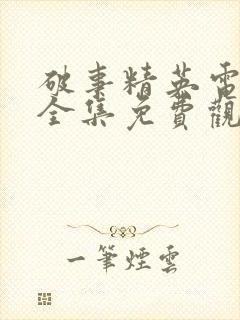 破事精英電
全集免費觀
一筆煙雲